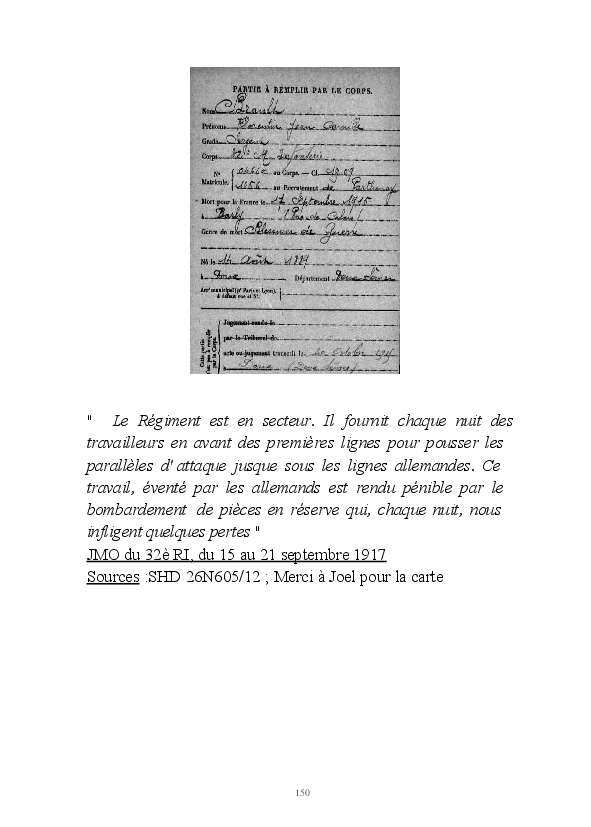 PARTIE À REMPLIR PAR LE CORPS.
Nom Brault
Prénoms Florentin Jean Camille
Grade Sergent
Corps 32e R. Infanterie
N° 04660 au Corps. — Cl. 1909
Matricule. 1056 au Recrutement de Parthenay
Mort pour la France le 17 Septembre 1915
à (Pas de Calais)
Genre de mort Blessures de Guerre
Né le 14 Août 1889
à Département Deux Sèvres
Arrt municipal (pr Paris et Lyon),
à défaut rue et N°.
Cette partie
n'est pas à remplir
par le Corps.
Jugement rendu le
par le Tribunal de
acte ou jugement transcrit le octobre
à (Deux Sèvres)
" Le Régiment est en secteur. Il fournit chaque nuit des
travailleurs en avant des premières lignes pour pousser les
parallèles d'attaque jusque sous les lignes allemandes. Ce
travail, éventé par les allemands est rendu pénible par le
bombardement de pièces en réserve qui, chaque nuit, nous
infligent quelques pertes "
JMO du 32è RI, du 15 au 21 septembre 1917
Sources :SHD 26N605/12 ; Merci à Joel pour la carte
150